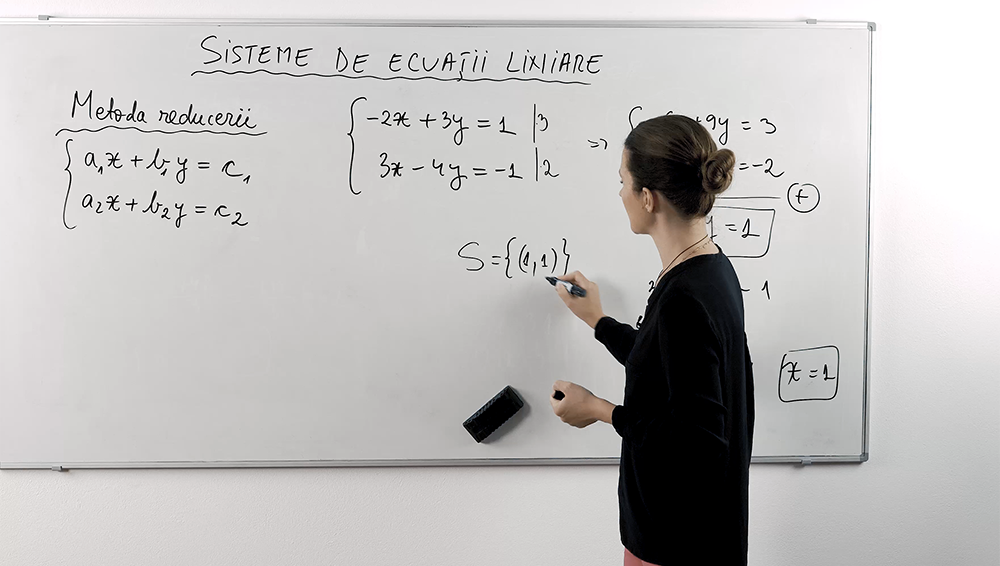 SISTEME DE ECUAȚII LINIARE
Metoda reducerii
a₁x + b₁y = c₁
a₂x + b₂y = c₂
-2x + 3y = 1 |3
3x - 4y = -1 |2
=>
+ 9y = 3
= -2
+
y = 1
S = {(1,1)}
- 1
x = 1